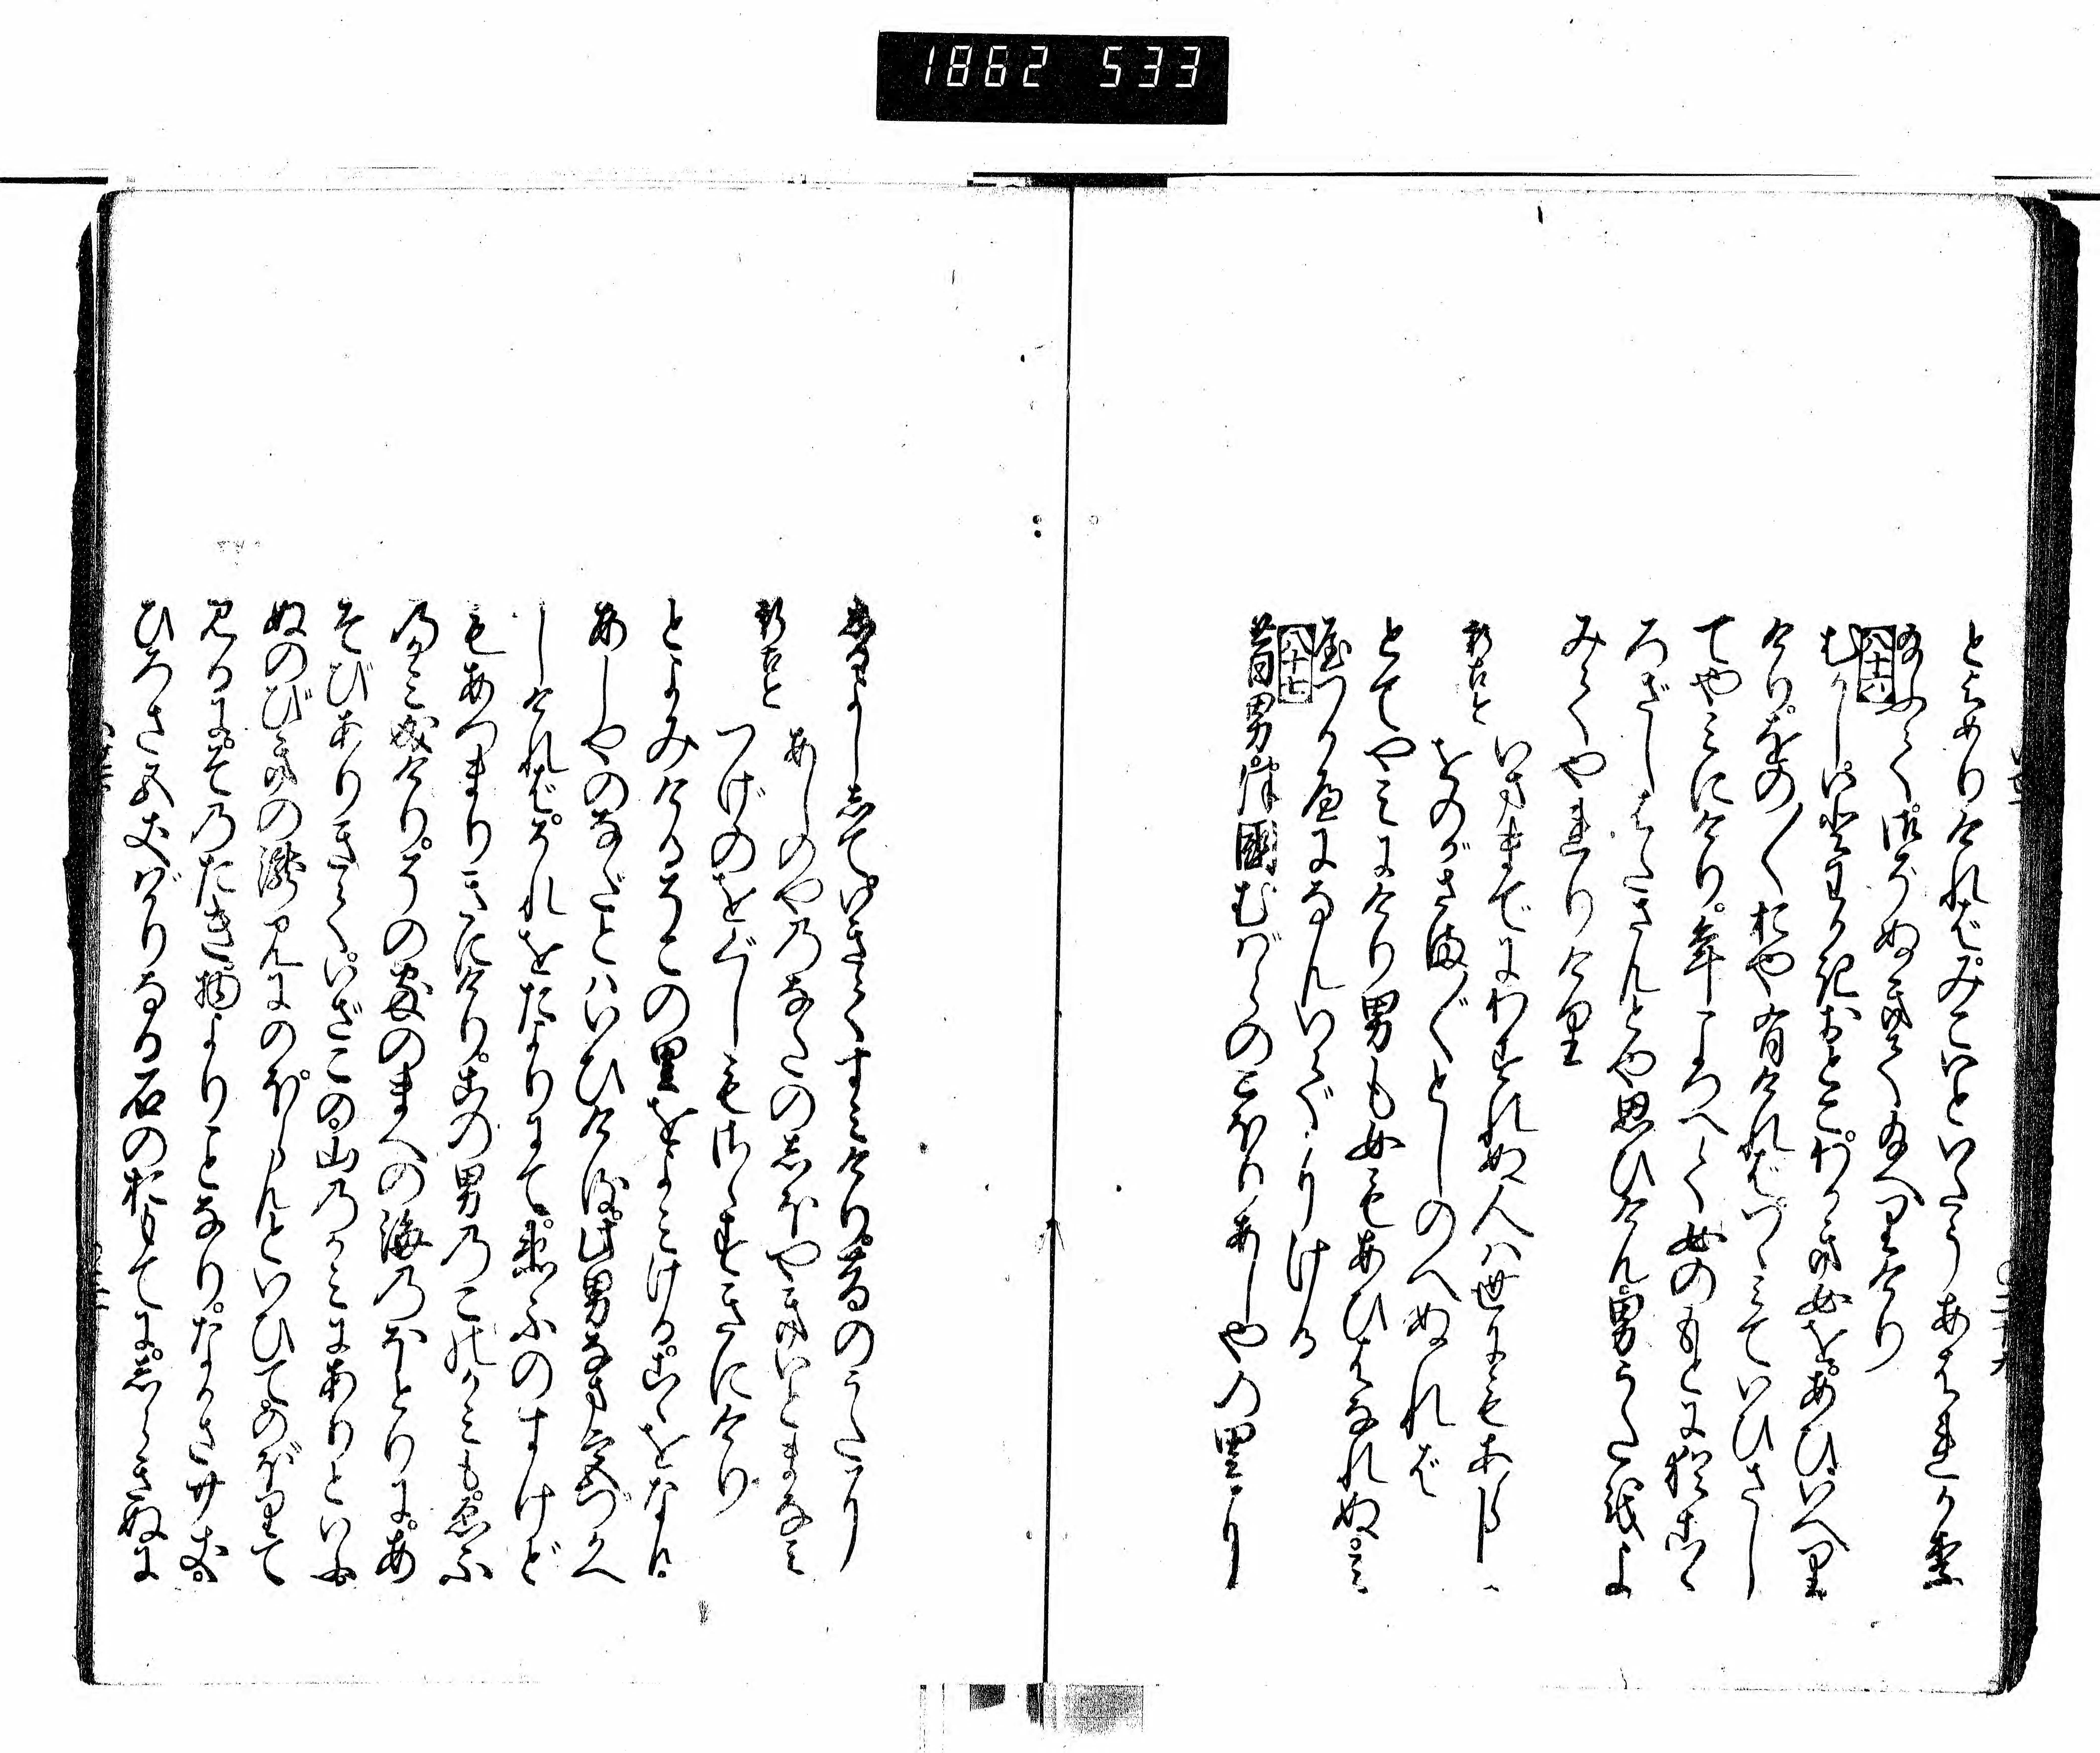 1862 533
とよめりければ。みこいといたうあはれか里
給ふて。御ぞぬきて給へりけり
八十六
むかし。いとわかきおとこ。わかき女を。あひいへり
けり。をの〳〵おや有ければ。つゝみていひさし
てやみにけり。年ころへて女のもとに猶こゝ
ろざしはたさんとや思ひけん男うたをよ
みてやれりけり
新古今
いままでにわすれぬ人は世にもあらじ
をのがさま〴〵としのへぬれば
とてやみにけり男も女もあひはなれぬ。み
やつかへになんいでたりける
八十七
昔男。津國むばらのこほりあしやの里に
しるよしして。いきてすみけり。昔のうたに
新古今
あしのやのなだのしほやきいとまなみ
つげのをぐしもさゝずきにけり
とよみけるぞこの里をよみける。こゝをなん
あしやのなだとはいひける。此男なま宮づかへ
しければ。それをたよりにて。衛ふのすけど
もあつまりきにけり。この男のこのかみも。衛ふ
のかみ成けり。その家のまへの海のほとりに。あ
そびありきて。いざこの山のかみにありといふ
ぬのびきの瀧見にのぼらんといひてのぼりて
見るに。その たき物よりことなり。ながさ廿丈。
ひろさ五丈ばかりなる石のおもてに。しらきぬに